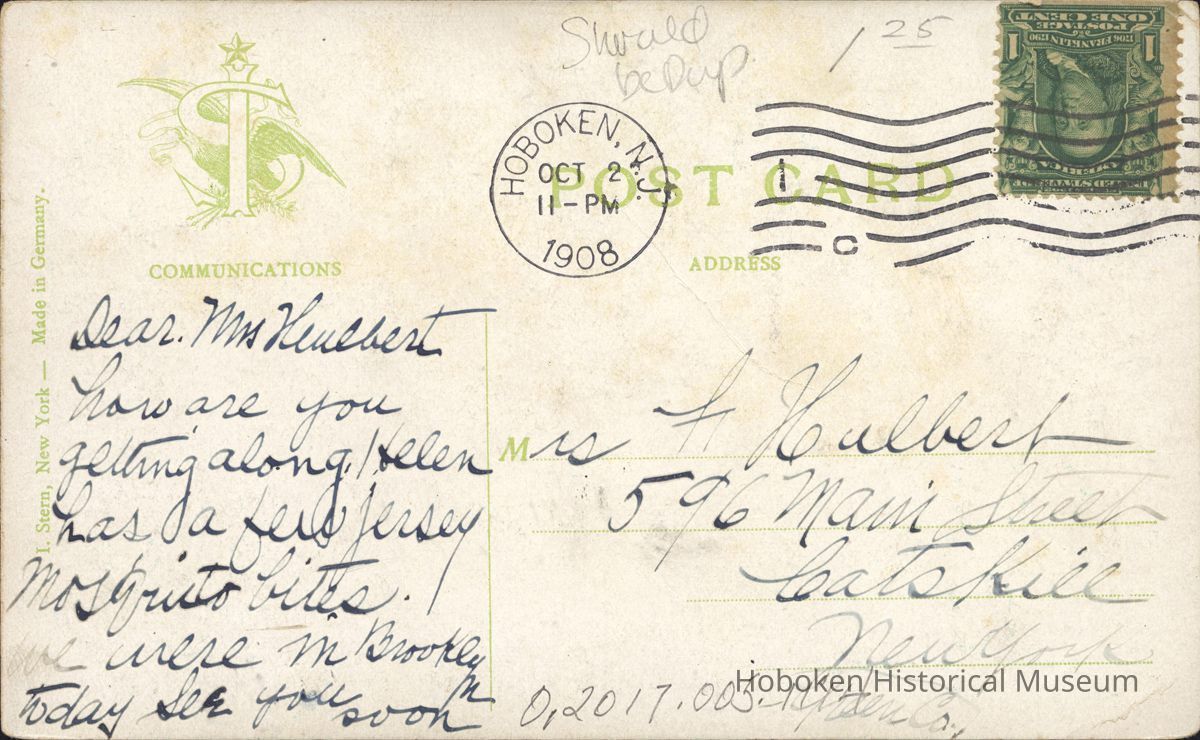 1 25
HOBOKEN, N.J.
OCT 2
11-PM
1908
POST CARD
1
C
COMMUNICATIONS
ADDRESS
I. Stern, New York — Made in Germany.
Dear. Mrs Heulbert
how are you
getting along. Helen
has a few Jersey
Mosquito bites.
we were in Brooklyn
today see you soon
Mrs F Hulbert
596 Main Street
Catskill
New York
Co.
0,2017.003.
Hoboken Historical Museum
SERIES 1902
POSTAGE
ONE CENT
1 FRANKLIN 1
1706 1790